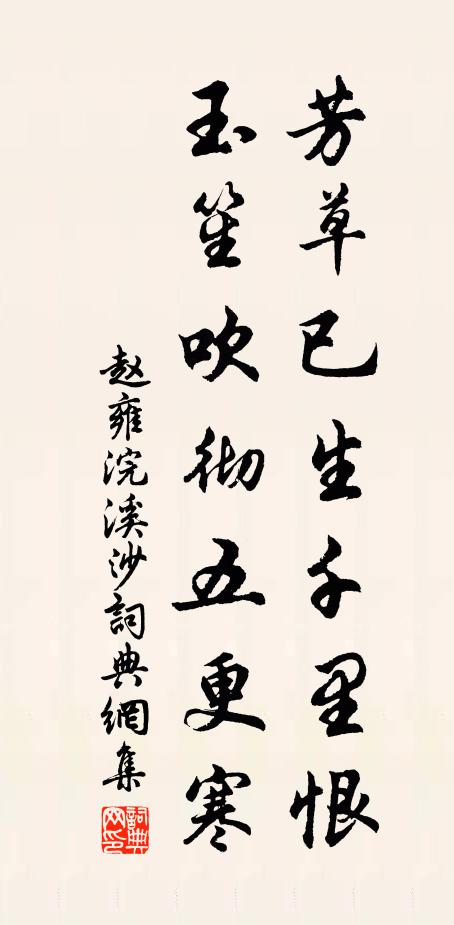 芳草已生千里恨
玉笙吹彻五更寒
赵雍浣溪沙詞典網集
詞典網印